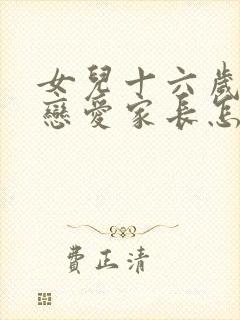 女兒十六歲
戀愛家長怎
費正清